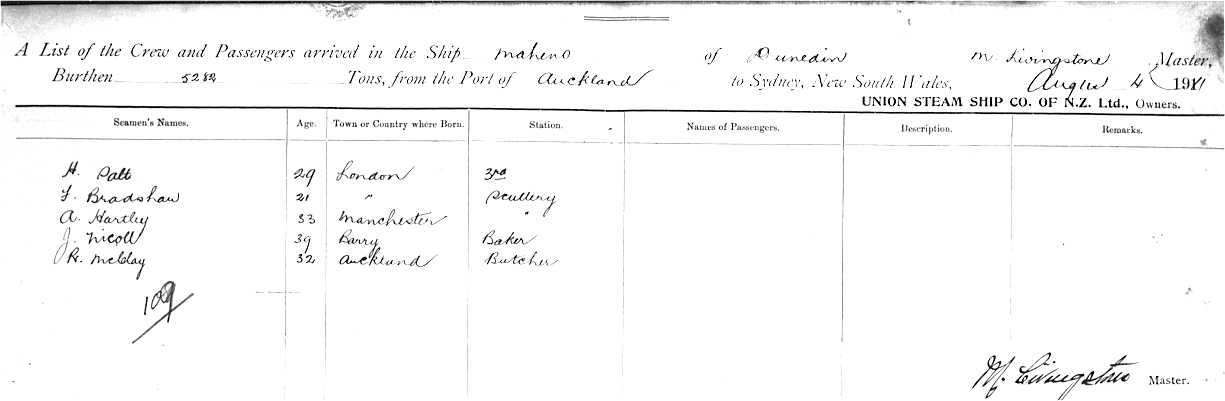 A List of the Crew and Passengers arrived in the Ship Maheno of Dunedin M. Livingstone Master,
Burthen 5282 Tons, from the Port of Auckland to Sydney, New South Wales, 4 1911
UNION STEAM SHIP CO. OF N.Z. Ltd., Owners.
Seamen's Names. Age. Town or Country where Born. Station. Names of Passengers. Description. Remarks.
H. 29 London 3rd
F. Bradshaw 21 " Scullery
A. Hartley 33 Manchester "
J. Nicoll 39 Barry Baker
R. McIlday 32 Auckland Butcher
109
M. Livingstone Master.